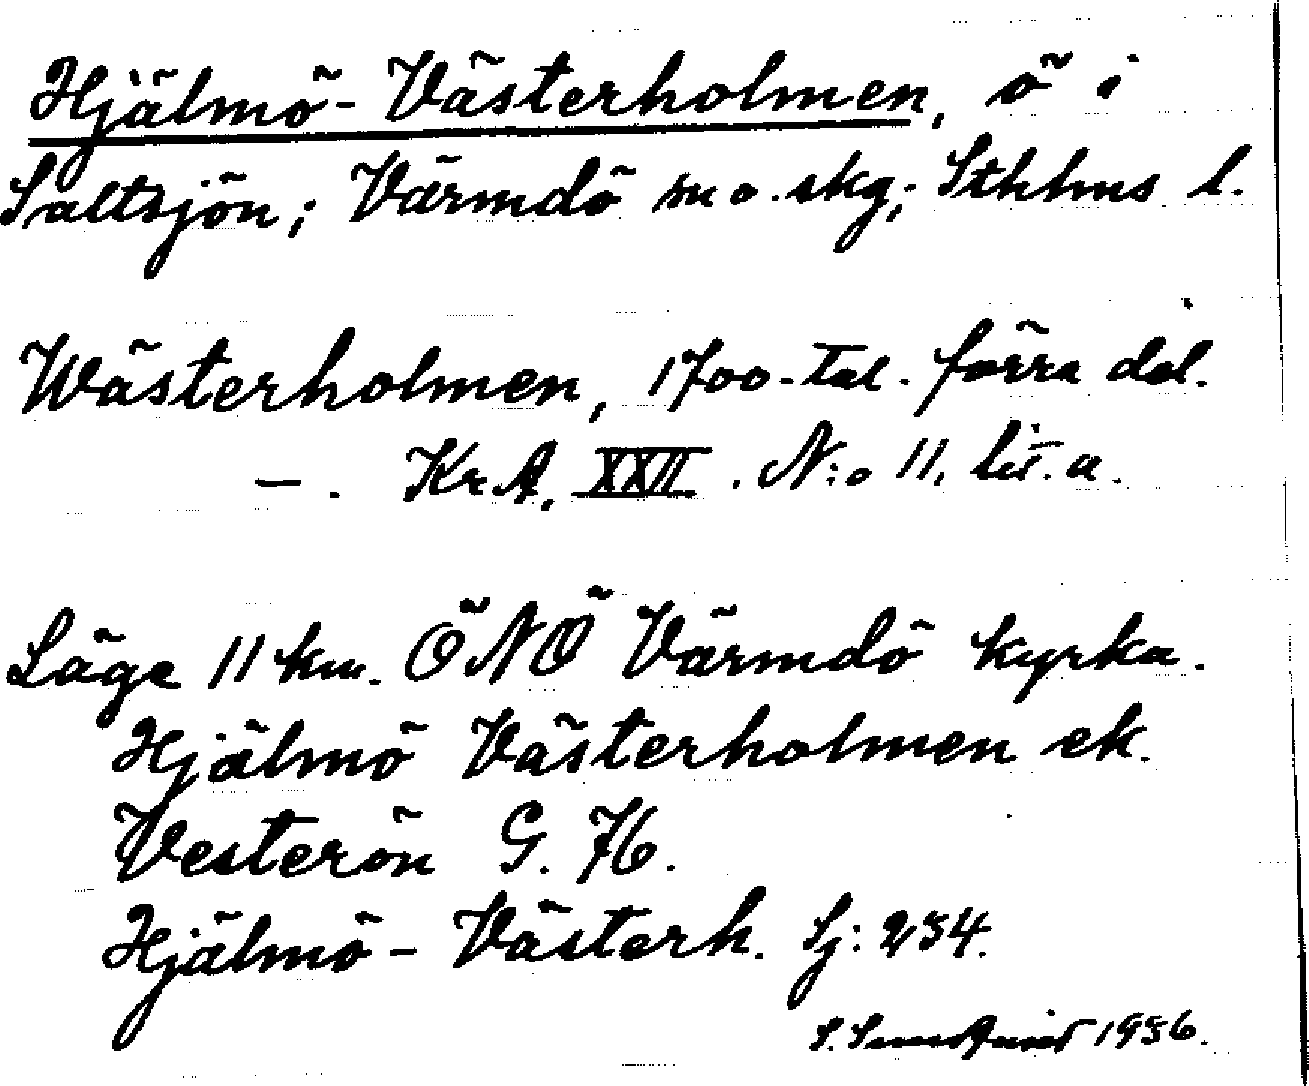 Hjälmö-Västerholmen, ö i
Saltsjön; Värmdö sn o. skg; Sthlms l.
Wästerholmen, 1700-tal. förra del.
— . KrA, XXII . N:o 11. lit. a.
Läge 11 km. ÖNÖ Värmdö kyrka.
Hjälmö Västerholmen ek.
Vesterön G. 76.
Hjälmö-Västerh. Sj: 234.
S. Sundqvist 1936.